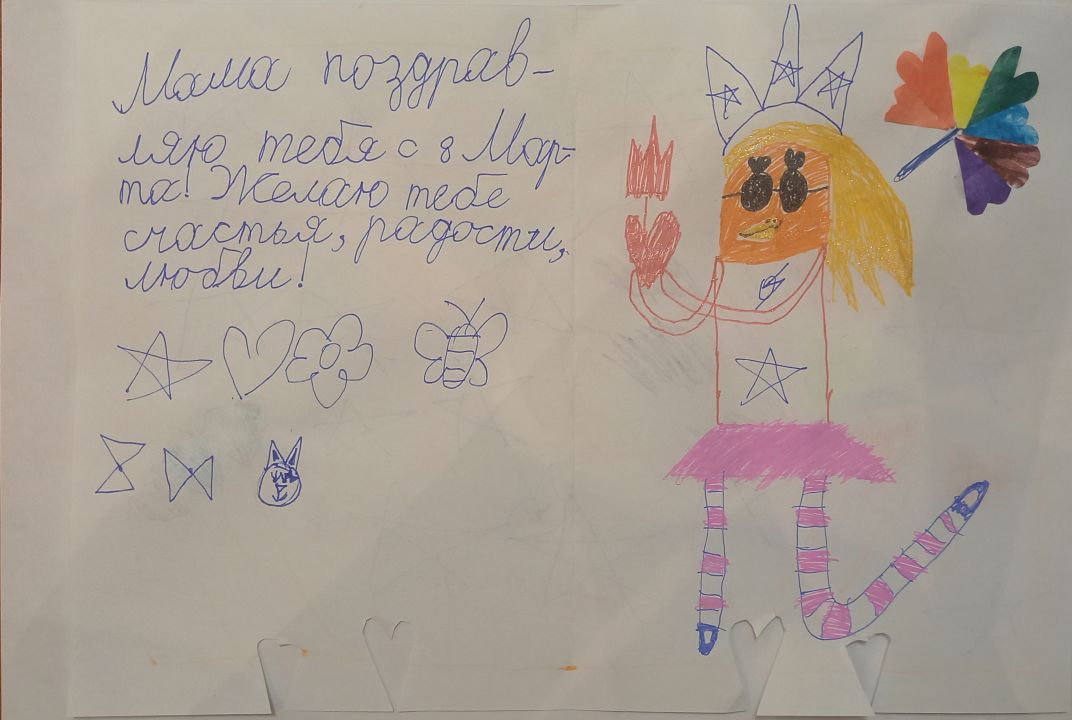 Мама поздрав-
ляю тебя с 8 Мар-
та! Желаю тебе
счастья, радости,
любви!